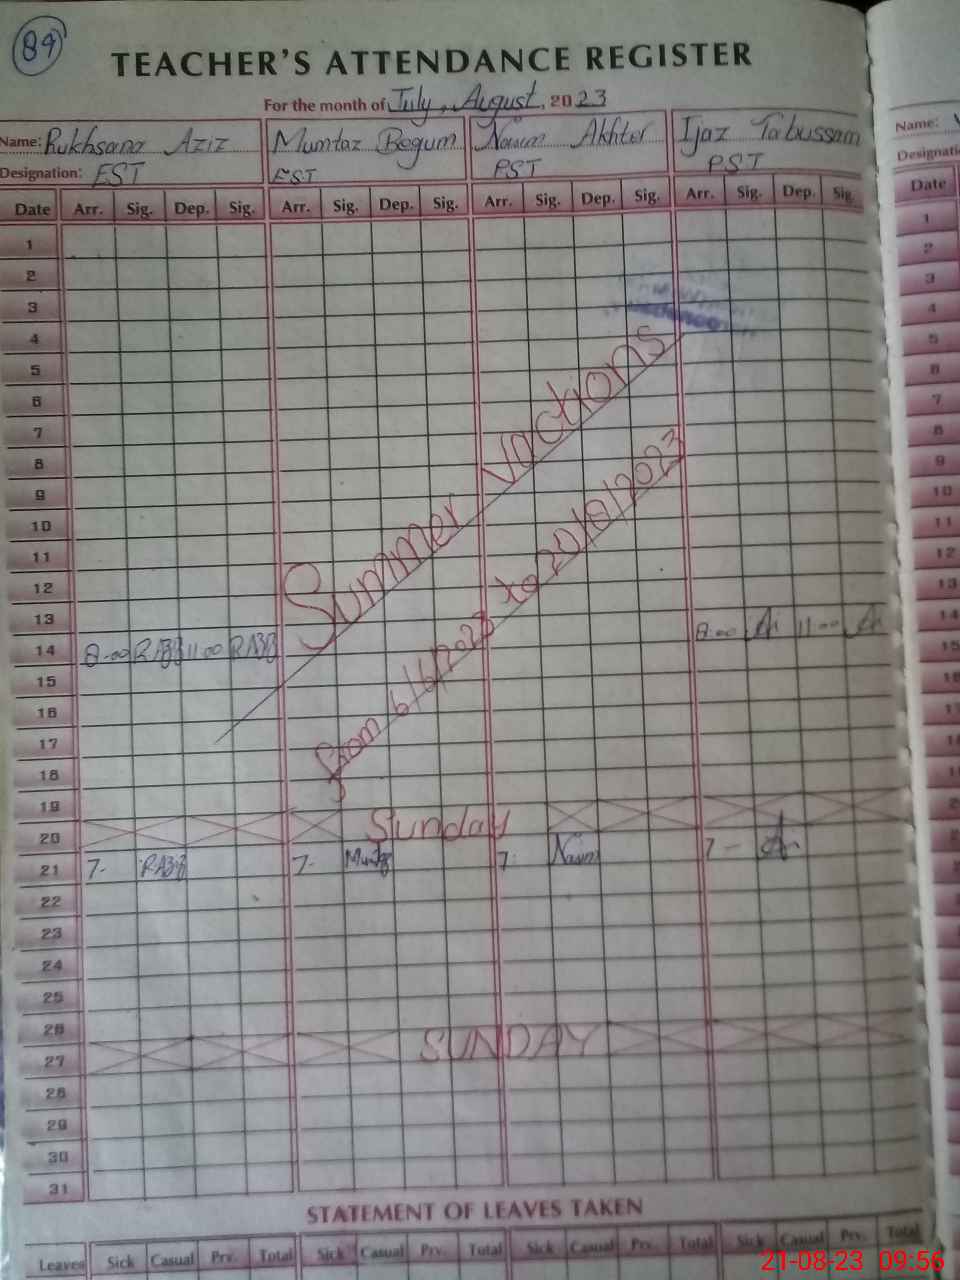 89
TEACHER'S ATTENDANCE REGISTER
For the month of July, August, 2023
Name: Rukhsana Aziz Mumtaz Begum Nasim Akhter Ijaz Tabussam Name:
Designation: EST EST PST PST
Date Arr. Sig. Dep. Sig. Arr. Sig. Dep. Sig. Arr. Sig. Dep. Sig. Arr. Sig. Dep. Sig. Date
1 1
2 2
3 3
4 4
5 5
6 6
7 7
8 8
9 9
10 10
11 11
12 12
13 13
14 8.00 RAziz 11.00 RAziz 8.00 11.00 14
15 15
16
17
18
19
Summer vactions
from 6/6/2023 to 20/8/2023
20 Sunday
21 7- RAziz 7- Mumtaz 7- Nasim 7-
22
23
24
25
26
27 SUNDAY
28
29
30
31
STATEMENT OF LEAVES TAKEN
Leaves Sick Casual Prv. Total Sick Casual Prv. Total Sick Casual Prv. Total Sick Casual Prv. Total
21-08-23 09:56